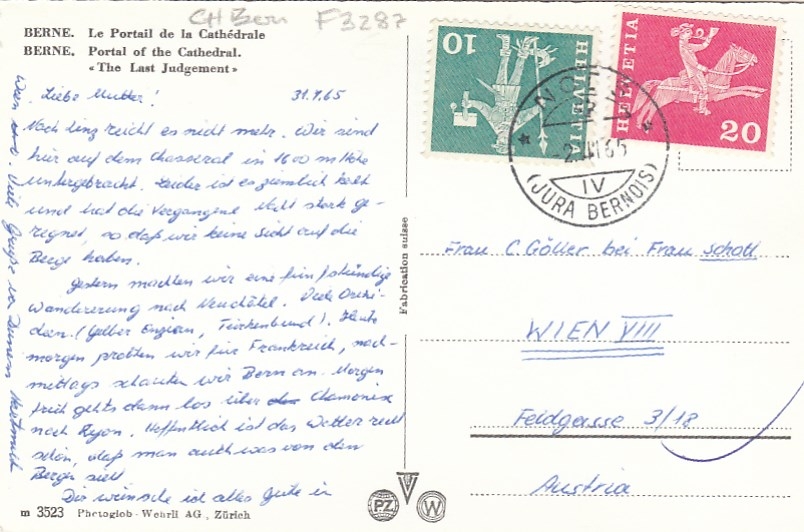 CH Bern F3287
BERNE. Le Portail de la Cathédrale
BERNE. Portal of the Cathedral.
«The Last Judgement»
Liebe Mutter! 31.V.65
Nach Linz reicht es nicht mehr. Wir sind
hier auf dem Chasseral in 1600 m Höhe
untergebracht. Leider ist es ziemlich kalt
und hat die vergangene Nacht stark ge-
regnet, so daß wir keine Sicht auf die
Berge haben.
Gestern machten wir eine fünfstündige
Wanderung nach Neuchâtel. Viele Orchi-
deen! (Gelber Enzian, Türkenbund). Heute
morgen probten wir für Frankreich, nach-
mittags schauten wir Bern an. Morgen
früh gehts dann los über Chamonix
nach Lyon. Hoffentlich ist das Wetter recht
schön, daß man auch was von den
Bergen sieht
Dir wünsche ich alles Gute in
Wien und Viele Grüße von Deinem Hartmut
m 3523 Photoglob-Wehrli AG., Zürich
Fabrication suisse
PZ
W
10
HELVETIA
HELVETIA
20
65
IV
(JURA BERNOIS)
Frau C. Göller bei Frau Schatl
WIEN VIII
Feldgasse 3/18
Austria